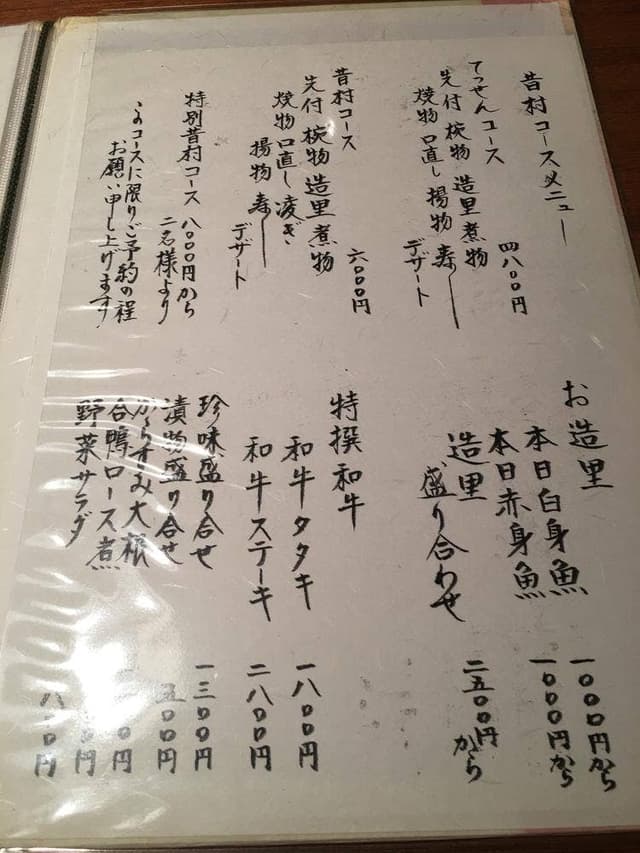 昔村コースメニュー
てっせんコース
四八〇〇円
先付 椀物 造里 煮物
焼物 口直し 揚物 寿し
デザート
昔村コース
六〇〇〇円
先付 椀物 造里 煮物
焼物 口直し 凌ぎ
揚物 寿し
デザート
特別昔村コース 八〇〇〇円から
二名様より
このコースに限りご予約の程
お願い申し上げます
お造里
本日白身魚 一〇〇〇円から
本日赤身魚 一〇〇〇円から
造里
盛り合わせ 二五〇〇円から
特撰和牛
和牛タタキ 一八〇〇円
和牛ステーキ 二八〇〇円
珍味盛り合せ 一三〇〇円
漬物盛り合せ 五〇〇円
からすみ大根 〇〇円
合鴨ロース煮 〇〇円
野菜サラダ 八〇〇円